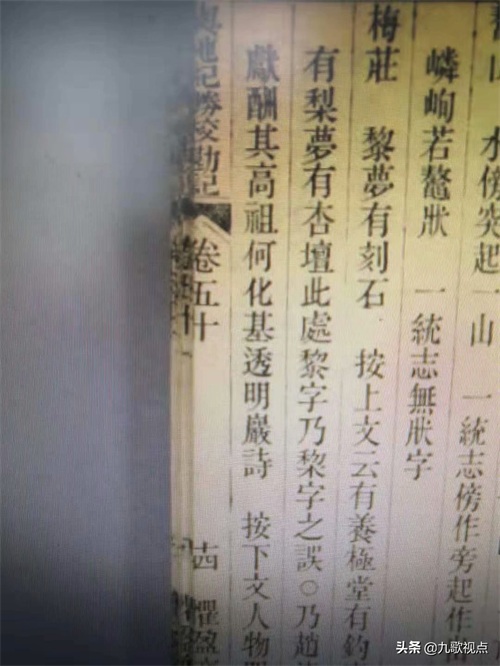 山 水傍突起一山 一統志傍作旁起作
嶙峋若鼇狀 一統志無狀字
梅莊 黎夢有刻石 按上文云有養極堂有釣
有梨夢有杏壇此處黎字乃棃字之誤○乃趙
獻酬其高祖何化基透明巖詩 按下文人物
輿地紀勝校勘記 卷五十 十四 懼盈
头条 @九歌视点